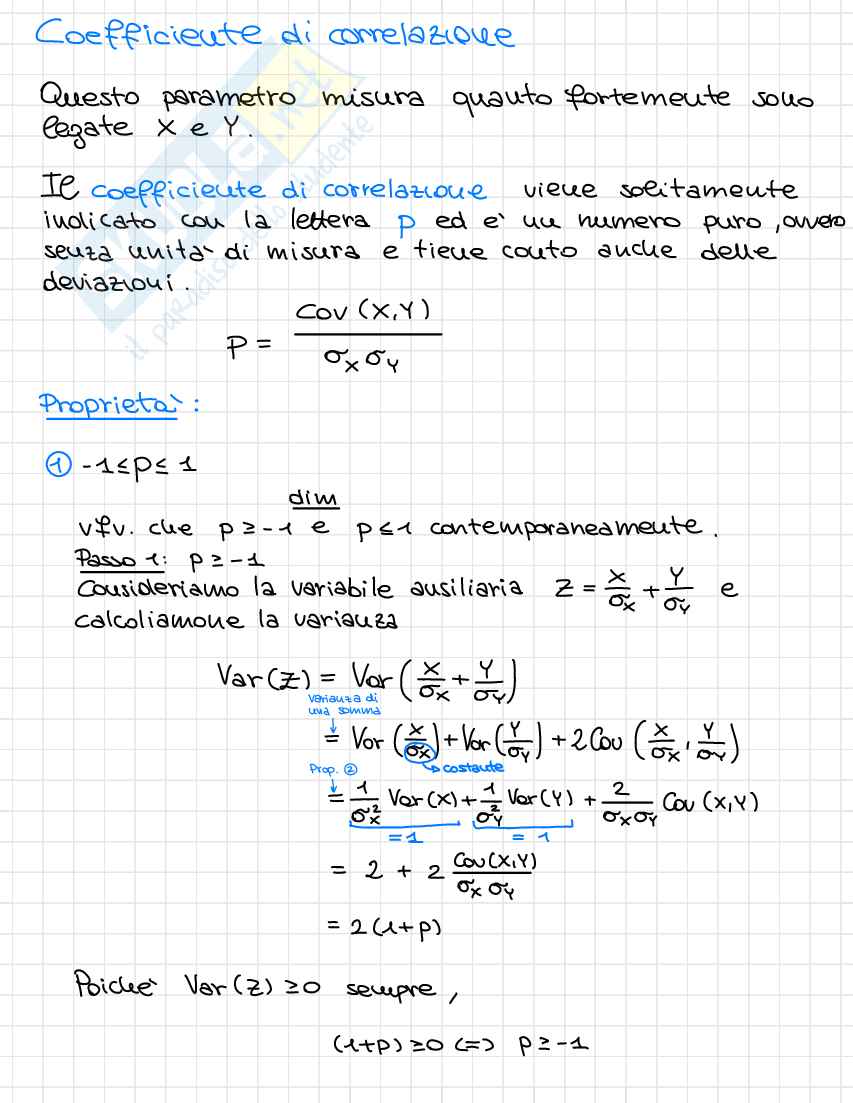 Coefficiente di correlazione
Questo parametro misura quanto fortemente sono
legate X e Y.
Il coefficiente di correlazione viene solitamente
indicato con la lettera ρ ed e' un numero puro, ovvero
senza unita' di misura e tiene conto anche delle
deviazioni.
ρ = Cov(X,Y) / σ_X σ_Y
Proprieta':
① -1 ≤ ρ ≤ 1
dim
v≠v. che ρ ≥ -1 e ρ ≤ 1 contemporaneamente.
Passo 1: ρ ≥ -1
Consideriamo la variabile ausiliaria Z = X/σ_X + Y/σ_Y e
calcoliamone la varianza
Var(Z) = Var(X/σ_X + Y/σ_Y)
varianza di
una somma
↓
= Var(X/σ_X) + Var(Y/σ_Y) + 2Cov(X/σ_X, Y/σ_Y)
Prop. ② → costante
↓
= 1/σ_X² Var(X) + 1/σ_Y² Var(Y) + 2/σ_Xσ_Y Cov(X,Y)
= 1 = 1
= 2 + 2 Cov(X,Y)/σ_X σ_Y
= 2(1+ρ)
Poiche' Var(Z) ≥ 0 sempre,
(1+ρ) ≥ 0 <=> ρ ≥ -1